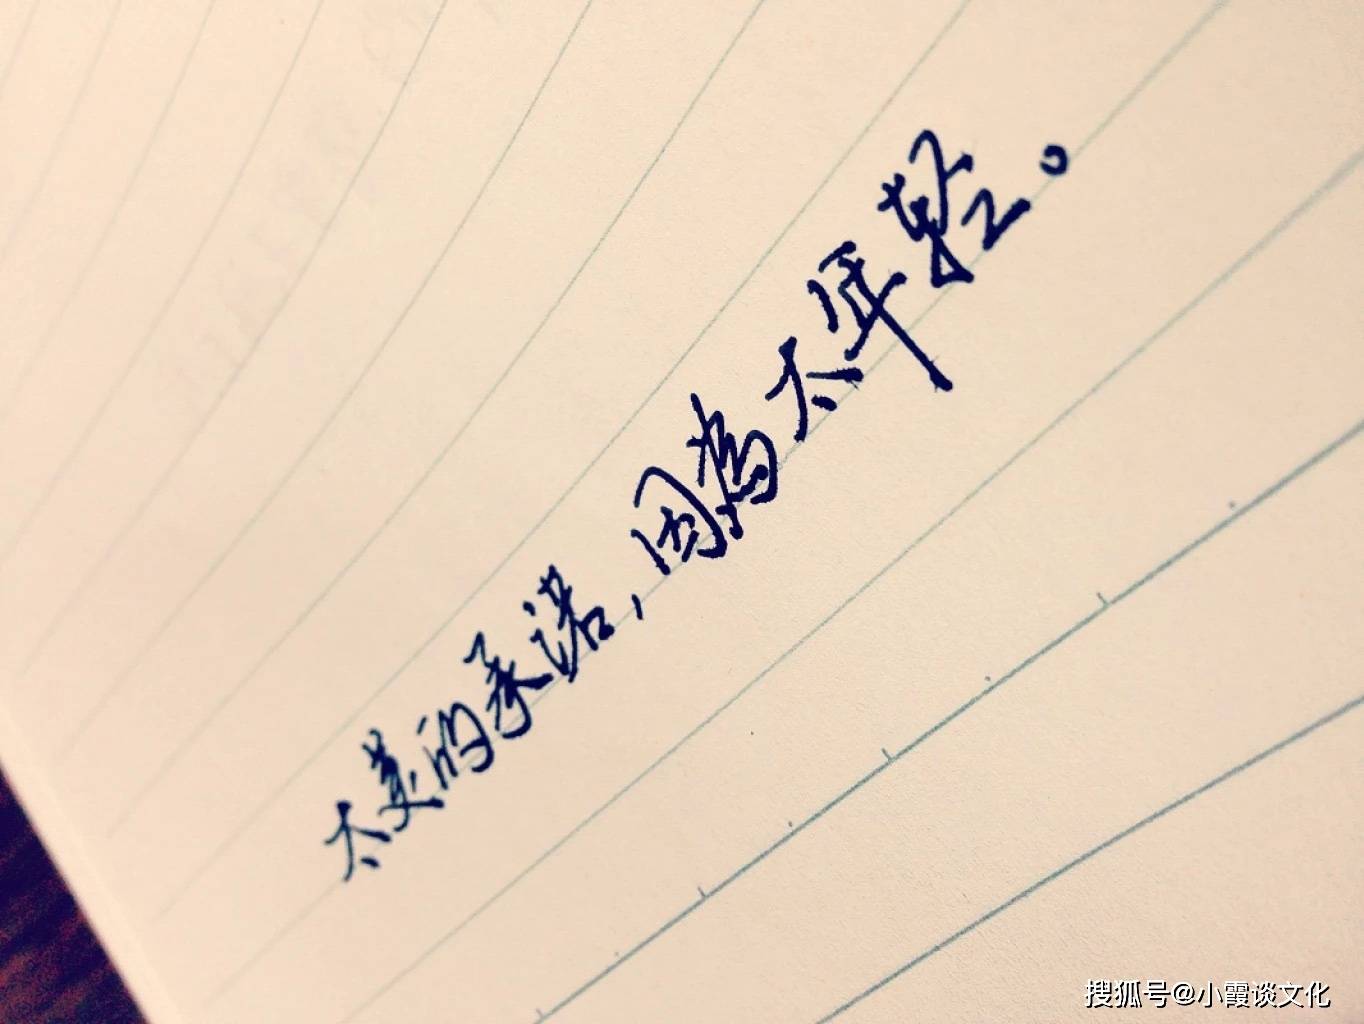 太美的承诺，因為太年轻。
搜狐号@小霞谈文化